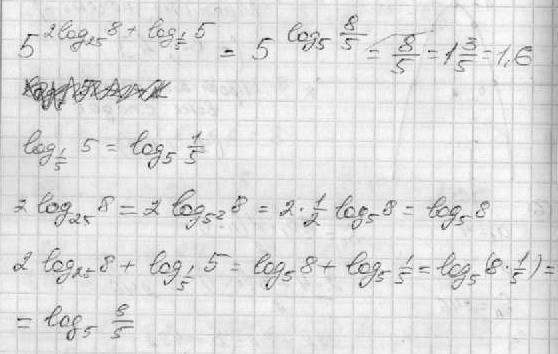 5^{2log₂₅8 + log_{1/5}5} = 5^{log₅ 8/5} = 8/5 = 1 3/5 = 1,6
log_{1/5} 5 = log₅ 1/5
2 log₂₅ 8 = 2 log_{5²} 8 = 2·1/2 log₅ 8 = log₅ 8
2 log₂₅ 8 + log_{1/5} 5 = log₅ 8 + log₅ 1/5 = log₅(8·1/5) =
= log₅ 8/5